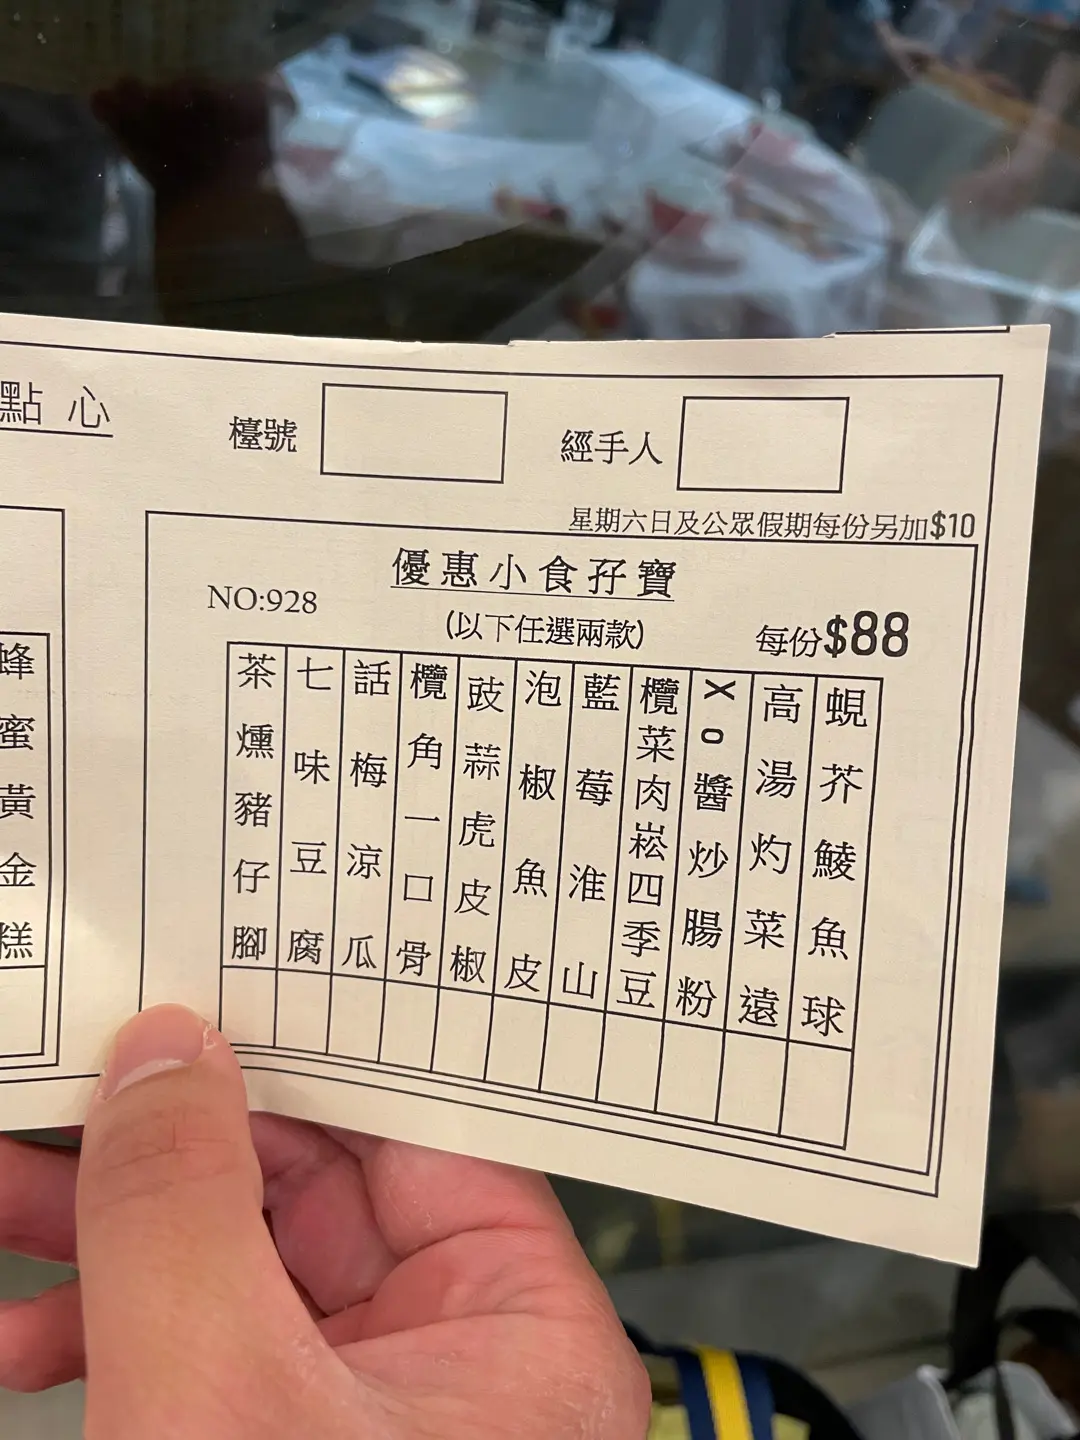 點心
檯號
經手人
星期六日及公眾假期每份另加$10
優惠小食孖寶
NO:928
(以下任選兩款)
每份$88
蜆芥鯪魚球
高湯灼菜遠
XO醬炒腸粉
欖菜肉崧四季豆
藍莓淮山
泡椒魚皮
豉蒜虎皮椒
欖角一口骨
話梅涼瓜
七味豆腐
茶燻豬仔腳
蜂蜜黃金糕